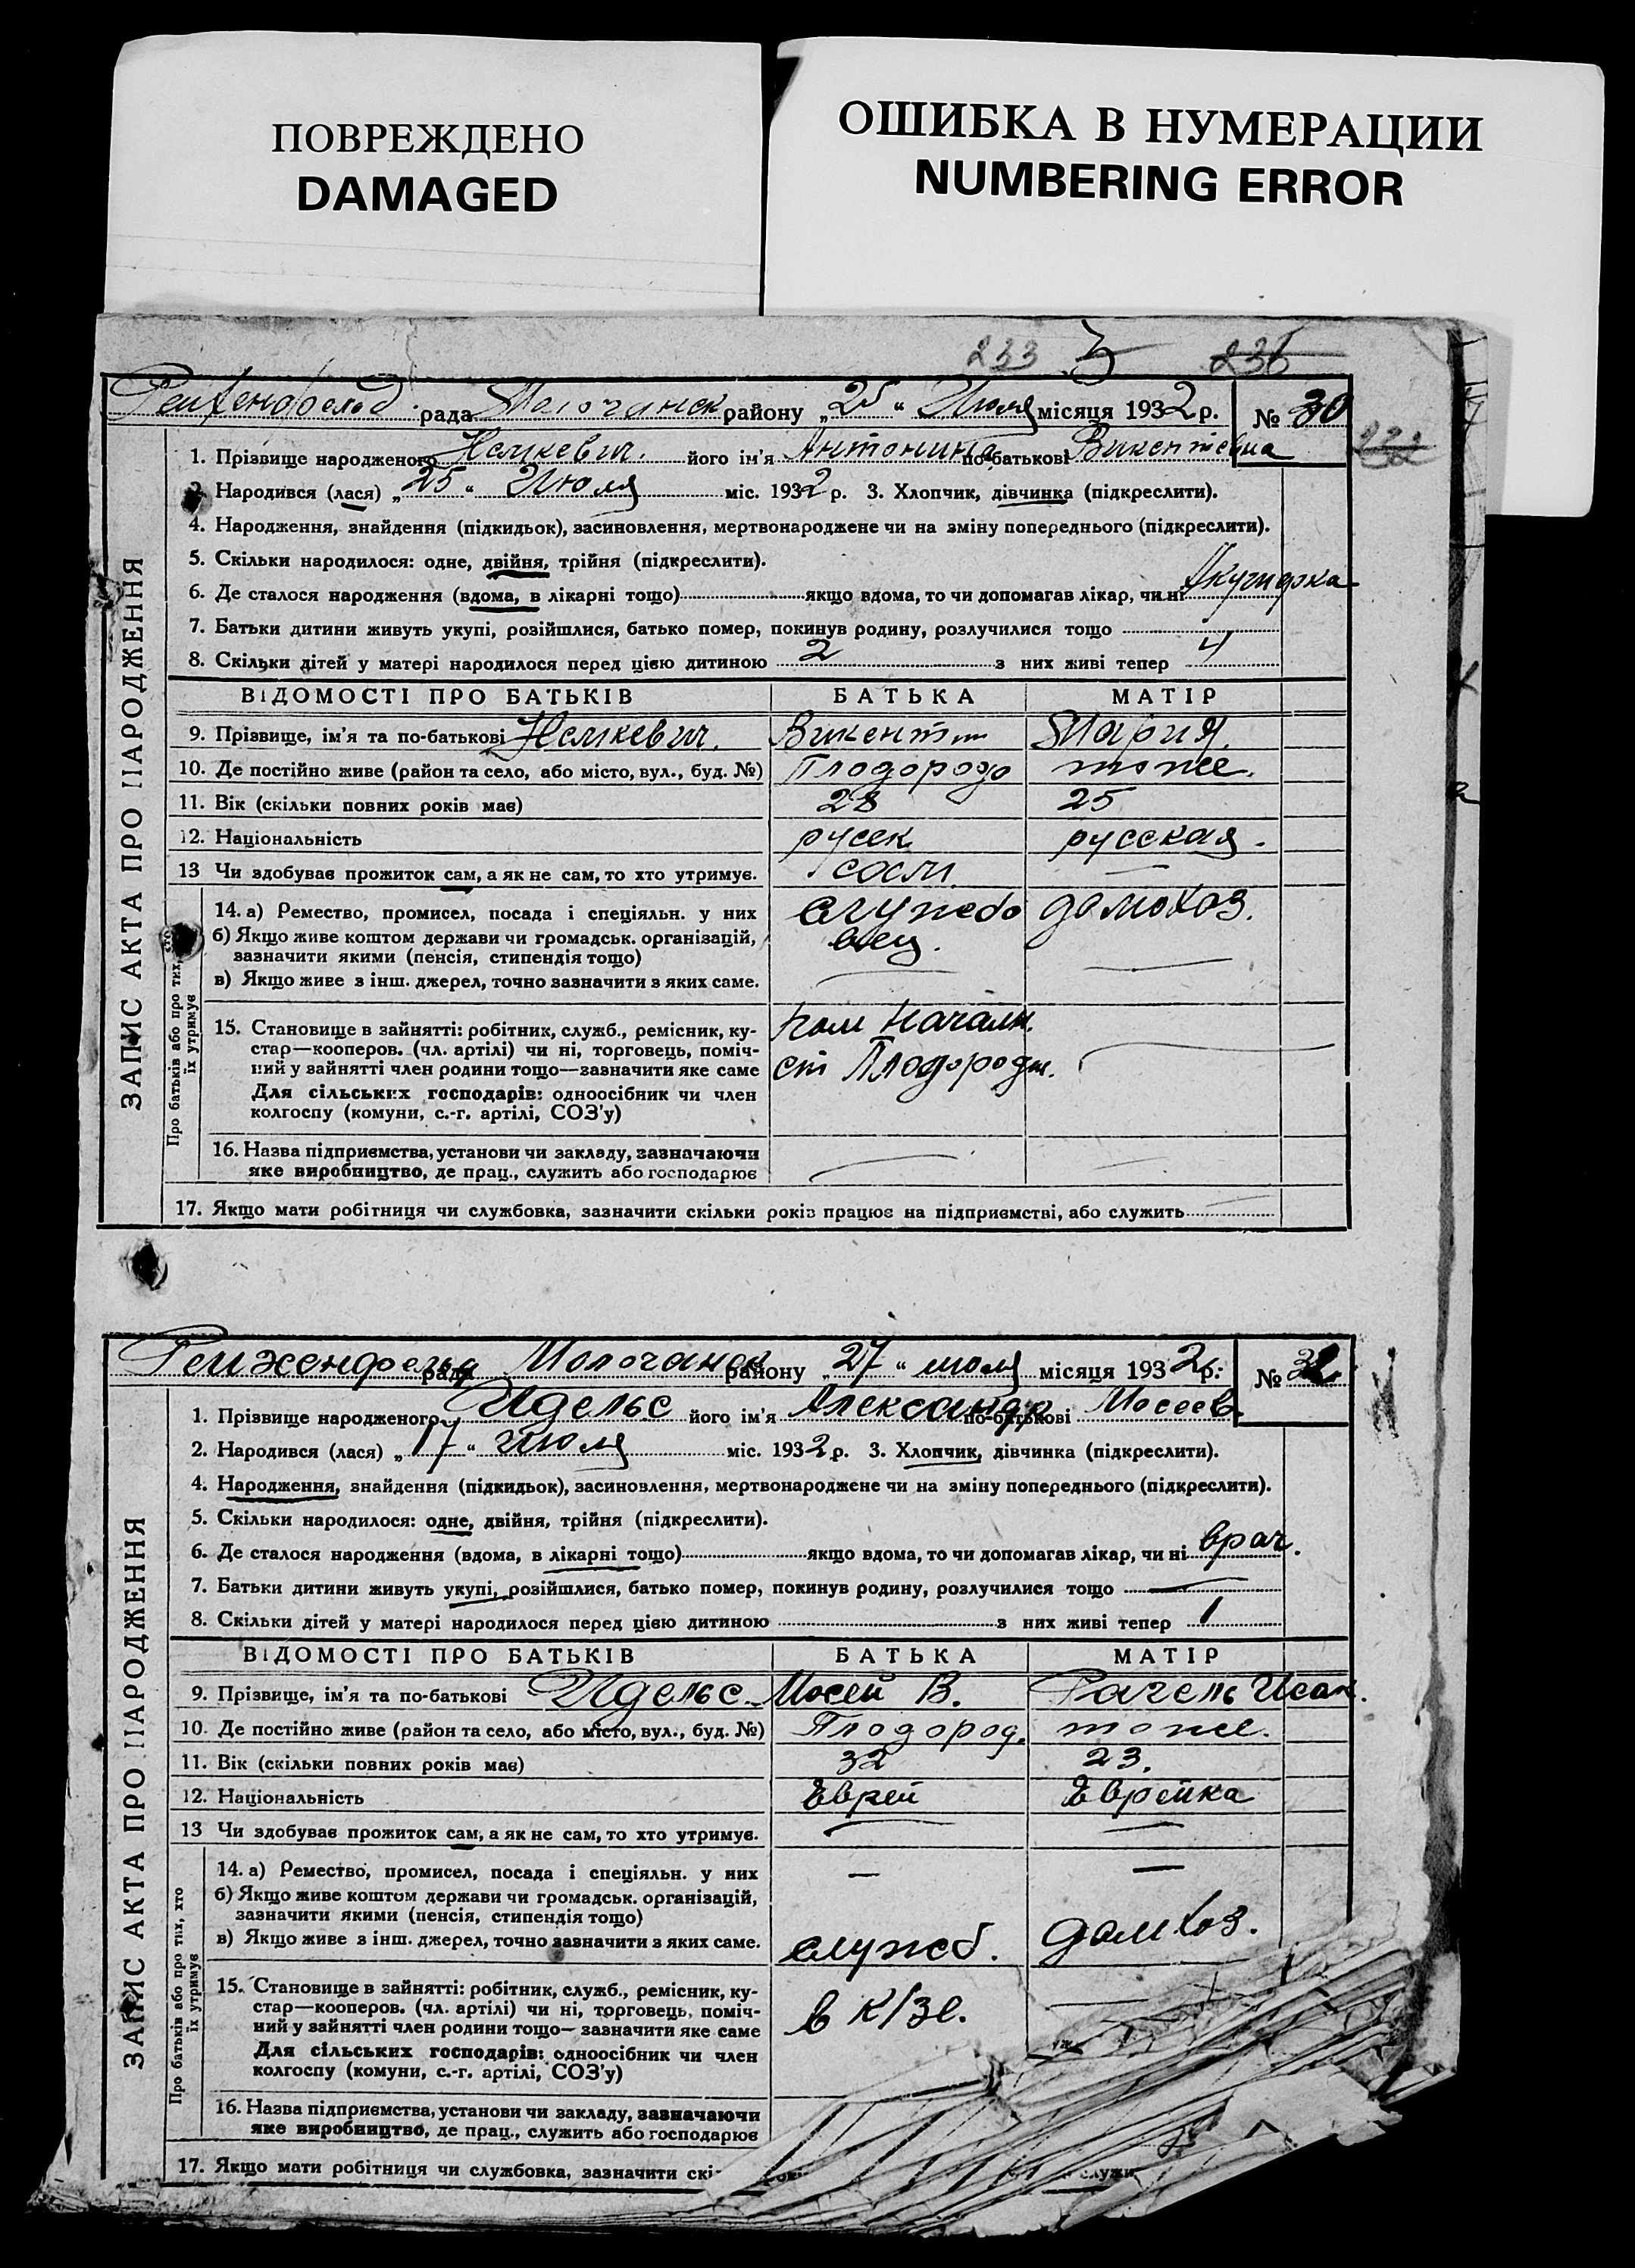 ПОВРЕЖДЕНО
DAMAGED
ОШИБКА В НУМЕРАЦИИ
NUMBERING ERROR
233 3 236
рада Молочанск району „25“ Июля місяця 1932 р. № 30
1. Прізвище народженого його ім'я Антонина по-батькові Викентьевна
2. Народився (лася) „25“ Июля міс. 1932 р. 3. Хлопчик, дівчинка (підкреслити).
4. Народження, знайдення (підкидьок), засиновлення, мертвонароджене чи на зміну попереднього (підкреслити).
5. Скільки народилося: одне, двійня, трійня (підкреслити).
6. Де сталося народження (вдома, в лікарні тощо) якщо вдома, то чи допомагав лікар, чи ні Акушерка
7. Батьки дитини живуть укупі, розійшлися, батько помер, покинув родину, розлучилися тощо
8. Скільки дітей у матері народилося перед цією дитиною 2 з них живі тепер 4
ЗАПИС АКТА ПРО НАРОДЖЕННЯ
ВІДОМОСТІ ПРО БАТЬКІВ БАТЬКА МАТІР
9. Прізвище, ім'я та по-батькові Викентий Мария.
10. Де постійно живе (район та село, або місто, вул., буд. №) Плодородо тоже.
11. Вік (скільки повних років має) 28 25
12. Національність русск. русская.
13 Чи здобуває прожиток сам, а як не сам, то хто утримує. сам. —
Про батьків або про тих, хто їх утримує
14. а) Ремество, промисел, посада і спеціяльн. у них служебо домохоз.
б) Якщо живе коштом держави чи громадськ. організацій,
зазначити якими (пенсія, стипендія тощо)
в) Якщо живе з інш. джерел, точно зазначити з яких саме.
15. Становище в зайнятті: робітник, служб., ремісник, ку- Пом Начальн.
стар—кооперов. (чл. артілі) чи ні, торговець, поміч-
ний у зайнятті член родини тощо—зазначити яке саме ст Плодородн.
Для сільських господарів: одноосібник чи член
колгоспу (комуни, с.-г. артілі, СОЗ'у)
16. Назва підприємства, установи чи закладу, зазначаючи
яке виробництво, де прац., служить або господарює
17. Якщо мати робітниця чи службовка, зазначити скільки років працює на підприємстві, або служить
Рейхенфельд рада Молочанск району „27“ июля місяця 1932 р. №
1. Прізвище народженого Идельс його ім'я Александр по-батькові Мосеев.
2. Народився (лася) „17“ Июля міс. 1932 р. 3. Хлопчик, дівчинка (підкреслити).
4. Народження, знайдення (підкидьок), засиновлення, мертвонароджене чи на зміну попереднього (підкреслити).
5. Скільки народилося: одне, двійня, трійня (підкреслити).
6. Де сталося народження (вдома, в лікарні тощо) якщо вдома, то чи допомагав лікар, чи ні врач.
7. Батьки дитини живуть укупі, розійшлися, батько помер, покинув родину, розлучилися тощо —
8. Скільки дітей у матері народилося перед цією дитиною з них живі тепер 1
ЗАПИС АКТА ПРО НАРОДЖЕННЯ
ВІДОМОСТІ ПРО БАТЬКІВ БАТЬКА МАТІР
9. Прізвище, ім'я та по-батькові Идельс. Мосей В. Рахель Исак.
10. Де постійно живе (район та село, або місто, вул., буд. №) Плодород. тоже.
11. Вік (скільки повних років має) 32 23.
12. Національність Еврей Еврейка
13 Чи здобуває прожиток сам, а як не сам, то хто утримує. — —
Про батьків або про тих, хто їх утримує
14. а) Ремество, промисел, посада і спеціяльн. у них — —
б) Якщо живе коштом держави чи громадськ. організацій,
зазначити якими (пенсія, стипендія тощо)
в) Якщо живе з інш. джерел, точно зазначити з яких саме. служеб. домхоз.
15. Становище в зайнятті: робітник, служб., ремісник, ку-
стар—кооперов. (чл. артілі) чи ні, торговець, поміч-
ний у зайнятті член родини тощо—зазначити яке саме
Для сільських господарів: одноосібник чи член
колгоспу (комуни, с.-г. артілі, СОЗ'у)
16. Назва підприємства, установи чи закладу, зазначаючи
яке виробництво, де прац., служить або господарює
17. Якщо мати робітниця чи службовка, зазначити скі